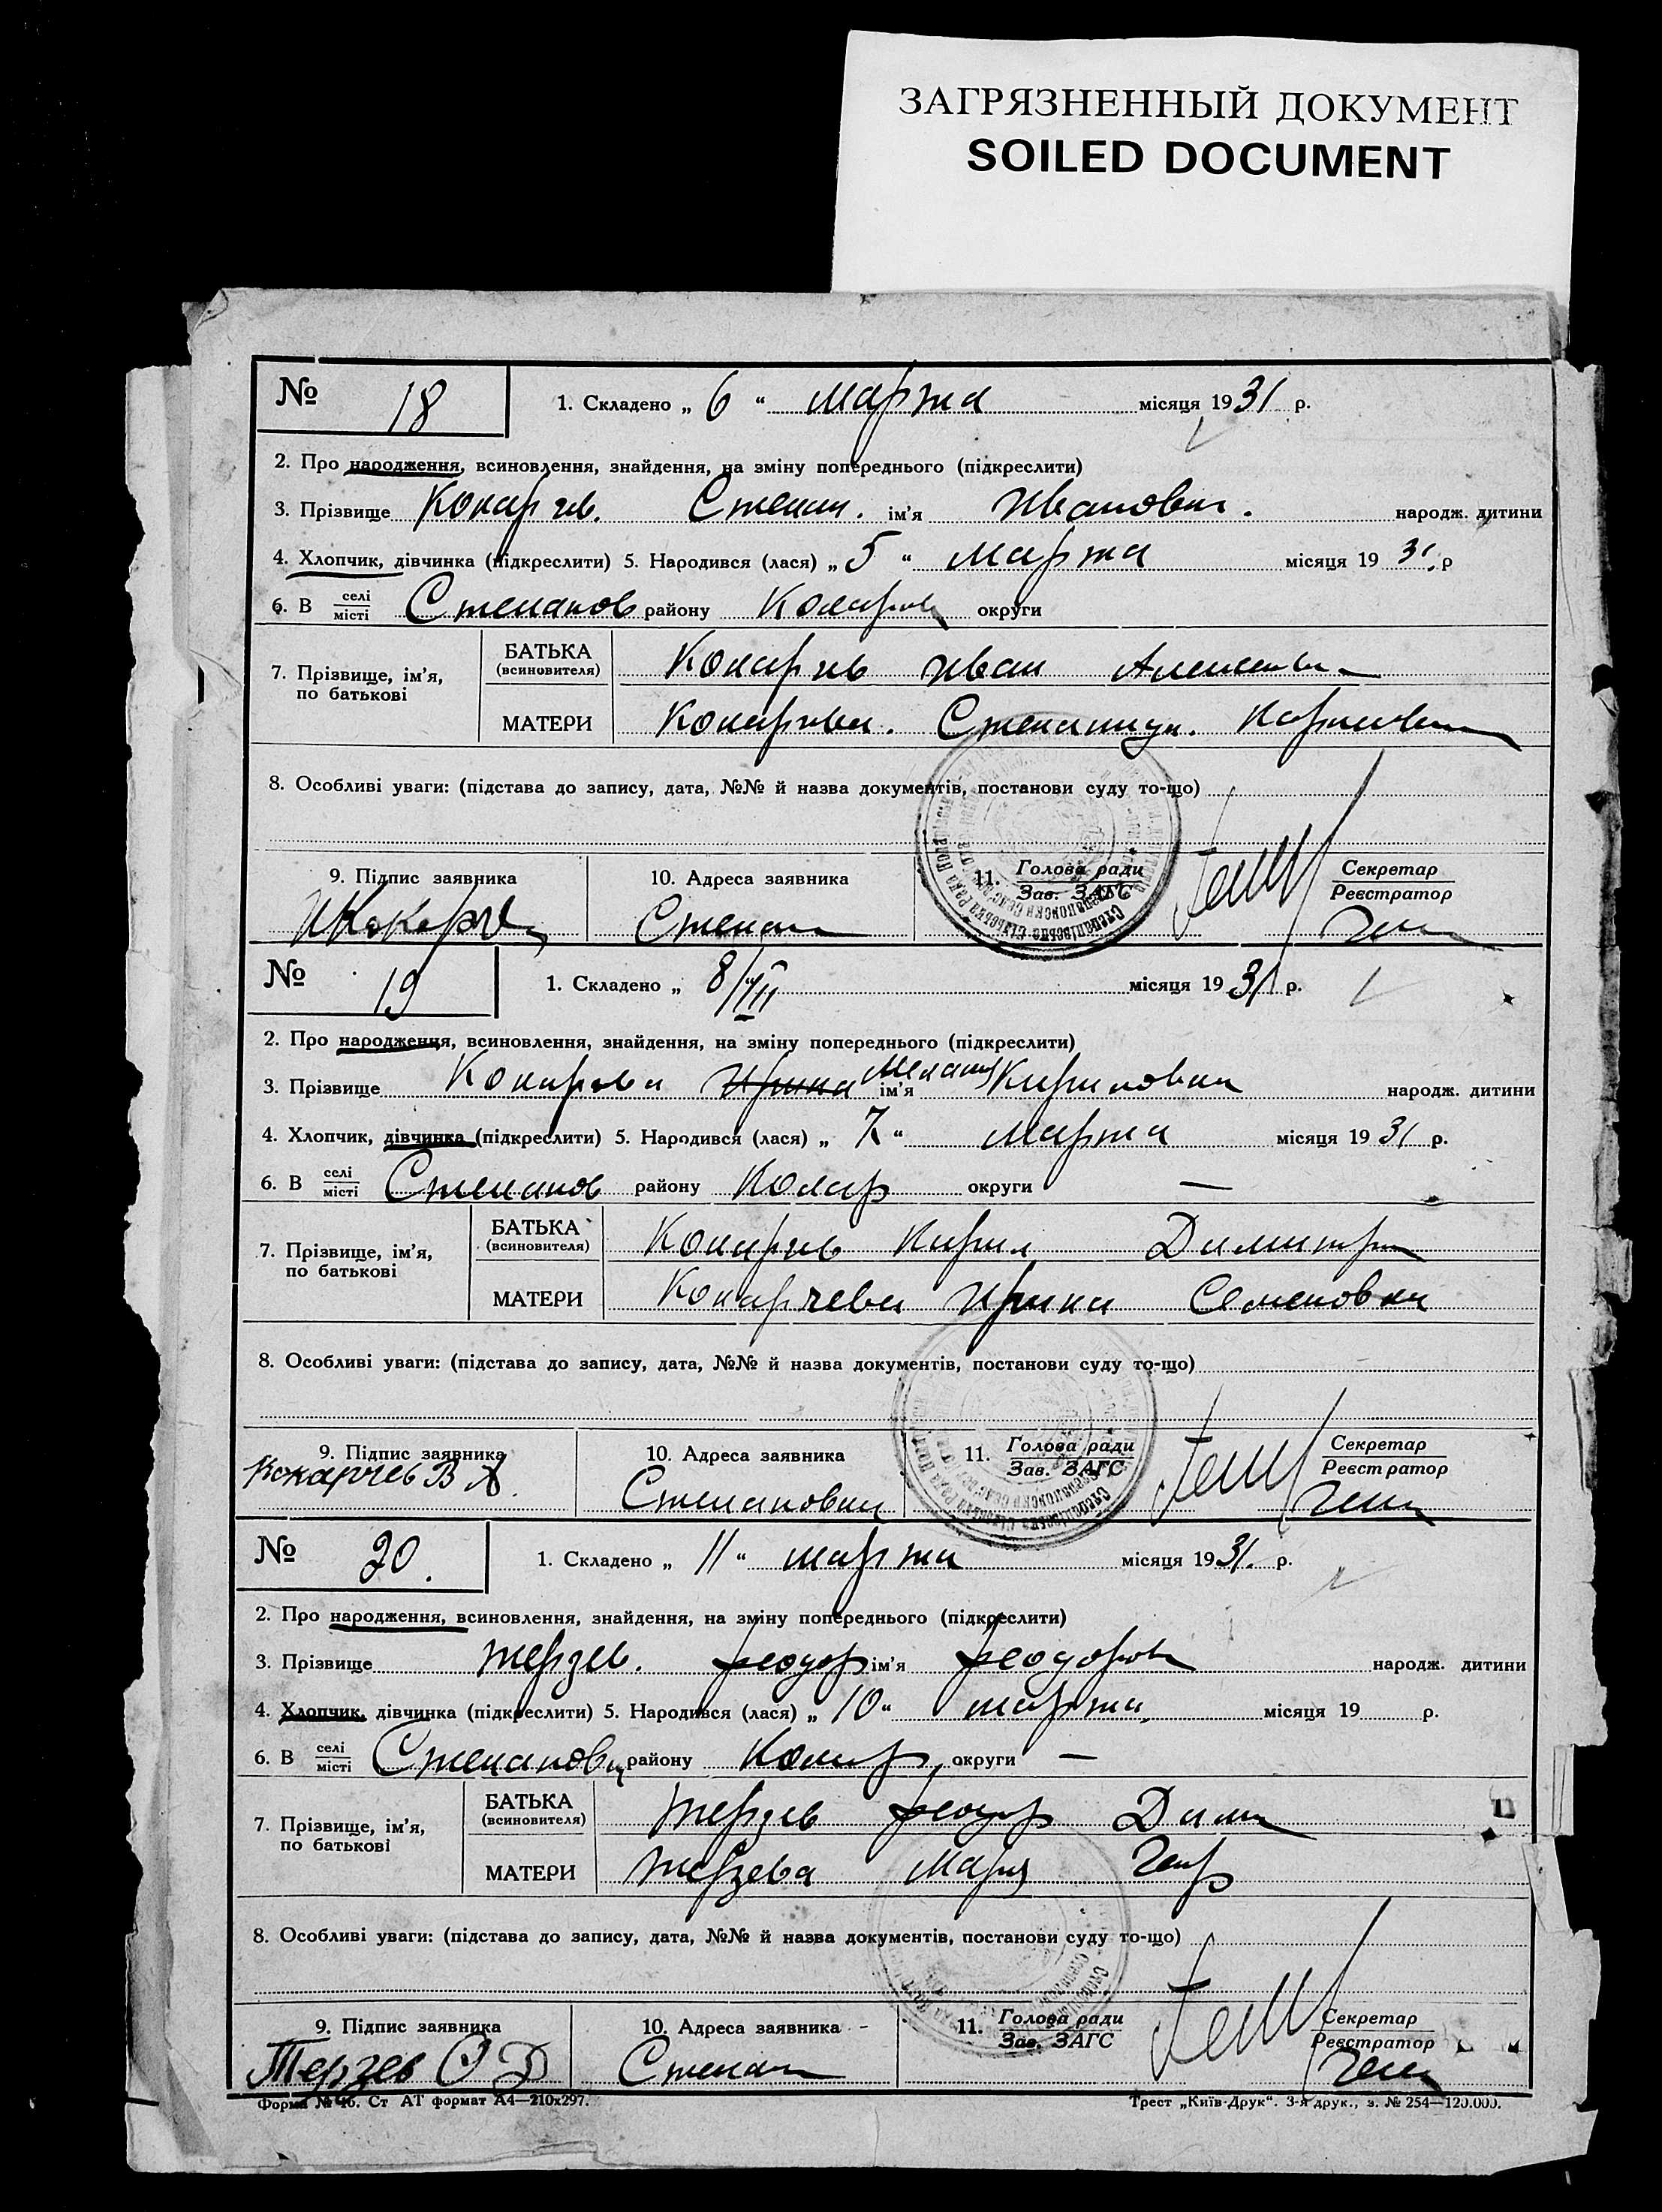 ЗАГРЯЗНЕННЫЙ ДОКУМЕНТ
SOILED DOCUMENT
№ 18 1. Складено „ 6 “ марта місяця 1931 р.
2. Про народження, всиновлення, знайдення, на зміну попереднього (підкреслити)
3. Прізвище Степан. ім'я Иванович. народж. дитини
4. Хлопчик, дівчинка (підкреслити) 5. Народився (лася) „ 5 “ марта місяця 1931. р
6. В селі/місті Степанов району Коларов округи
7. Прізвище, ім'я, по батькові
БАТЬКА (всиновителя) Иван
МАТЕРИ
8. Особливі уваги: (підстава до запису, дата, №№ й назва документів, постанови суду то-що)
9. Підпис заявника 10. Адреса заявника 11. Голова ради/Зав. ЗАГС Секретар/Реєстратор
Степан
№ 19 1. Складено „ 8/III місяця 1931 р.
2. Про народження, всиновлення, знайдення, на зміну попереднього (підкреслити)
3. Прізвище Ирина ім'я Кириловна народж. дитини
4. Хлопчик, дівчинка (підкреслити) 5. Народився (лася) „ 7 “ марта місяця 1931 р.
6. В селі/місті Степанов району Колар округи —
7. Прізвище, ім'я, по батькові
БАТЬКА (всиновителя) Кирил Димитр
МАТЕРИ Кокарчева Ирина Семеновна
8. Особливі уваги: (підстава до запису, дата, №№ й назва документів, постанови суду то-що)
9. Підпис заявника 10. Адреса заявника 11. Голова ради/Зав. ЗАГС Секретар/Реєстратор
Кокарчев В А. Степановка
№ 20. 1. Складено „ 11 “ марта місяця 1931. р.
2. Про народження, всиновлення, знайдення, на зміну попереднього (підкреслити)
3. Прізвище Терзев. Феодор ім'я Феодоров народж. дитини
4. Хлопчик, дівчинка (підкреслити) 5. Народився (лася) „ 10 “ марта, місяця 19 р.
6. В селі/місті Степановц району Колар округи —
7. Прізвище, ім'я, по батькові
БАТЬКА (всиновителя) Терзев Феодор Дим
МАТЕРИ Терзева Мария Геор
8. Особливі уваги: (підстава до запису, дата, №№ й назва документів, постанови суду то-що)
9. Підпис заявника 10. Адреса заявника 11. Голова ради/Зав. ЗАГС Секретар/Реєстратор
Терзев Ф Д Степан
Форма № 46. Ст АТ формат А4—210х297. Трест „Київ-Друк“. 3-я друк., з. № 254—120.000.